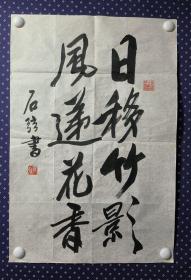 日移竹影
風遞花香
石弦書